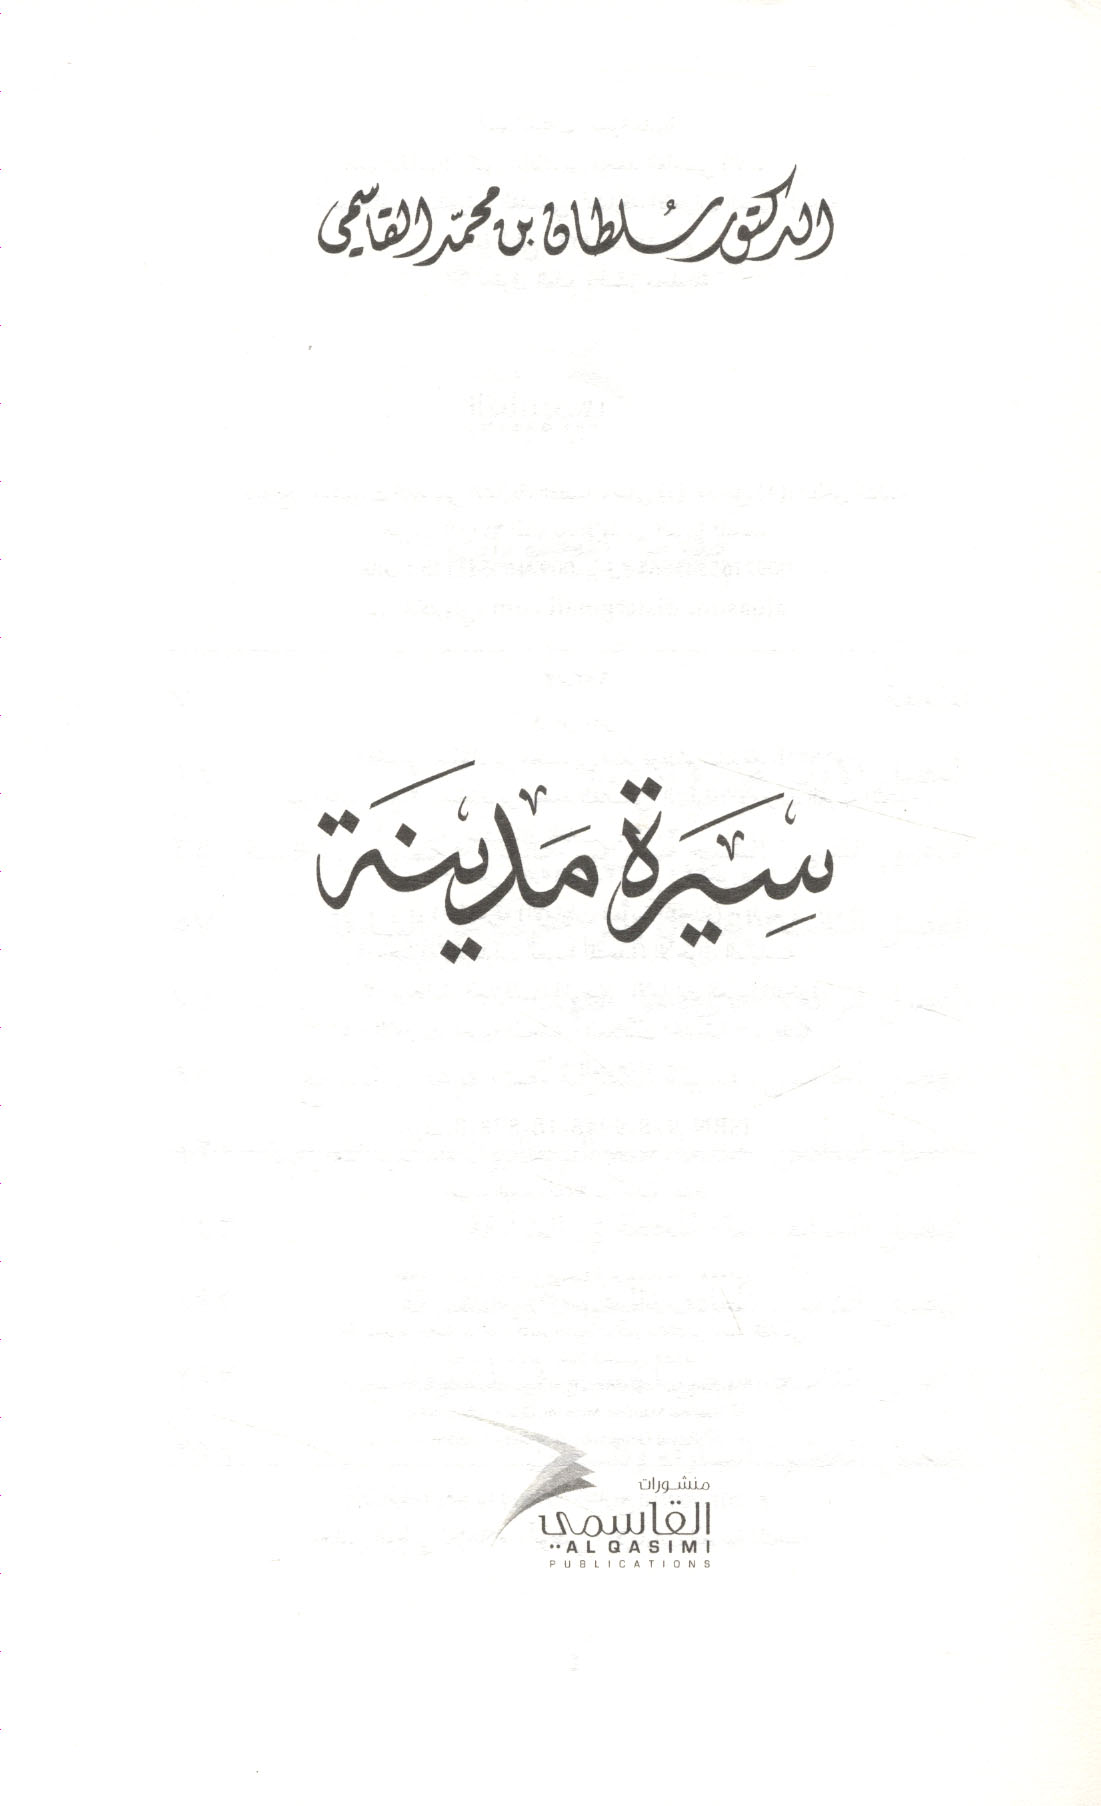 الدكتور سُلطان بن محمّد القاسمي
سِيْرَة مَديْنَة
منشورات
القاسمي
AL QASIMI
PUBLICATIONS